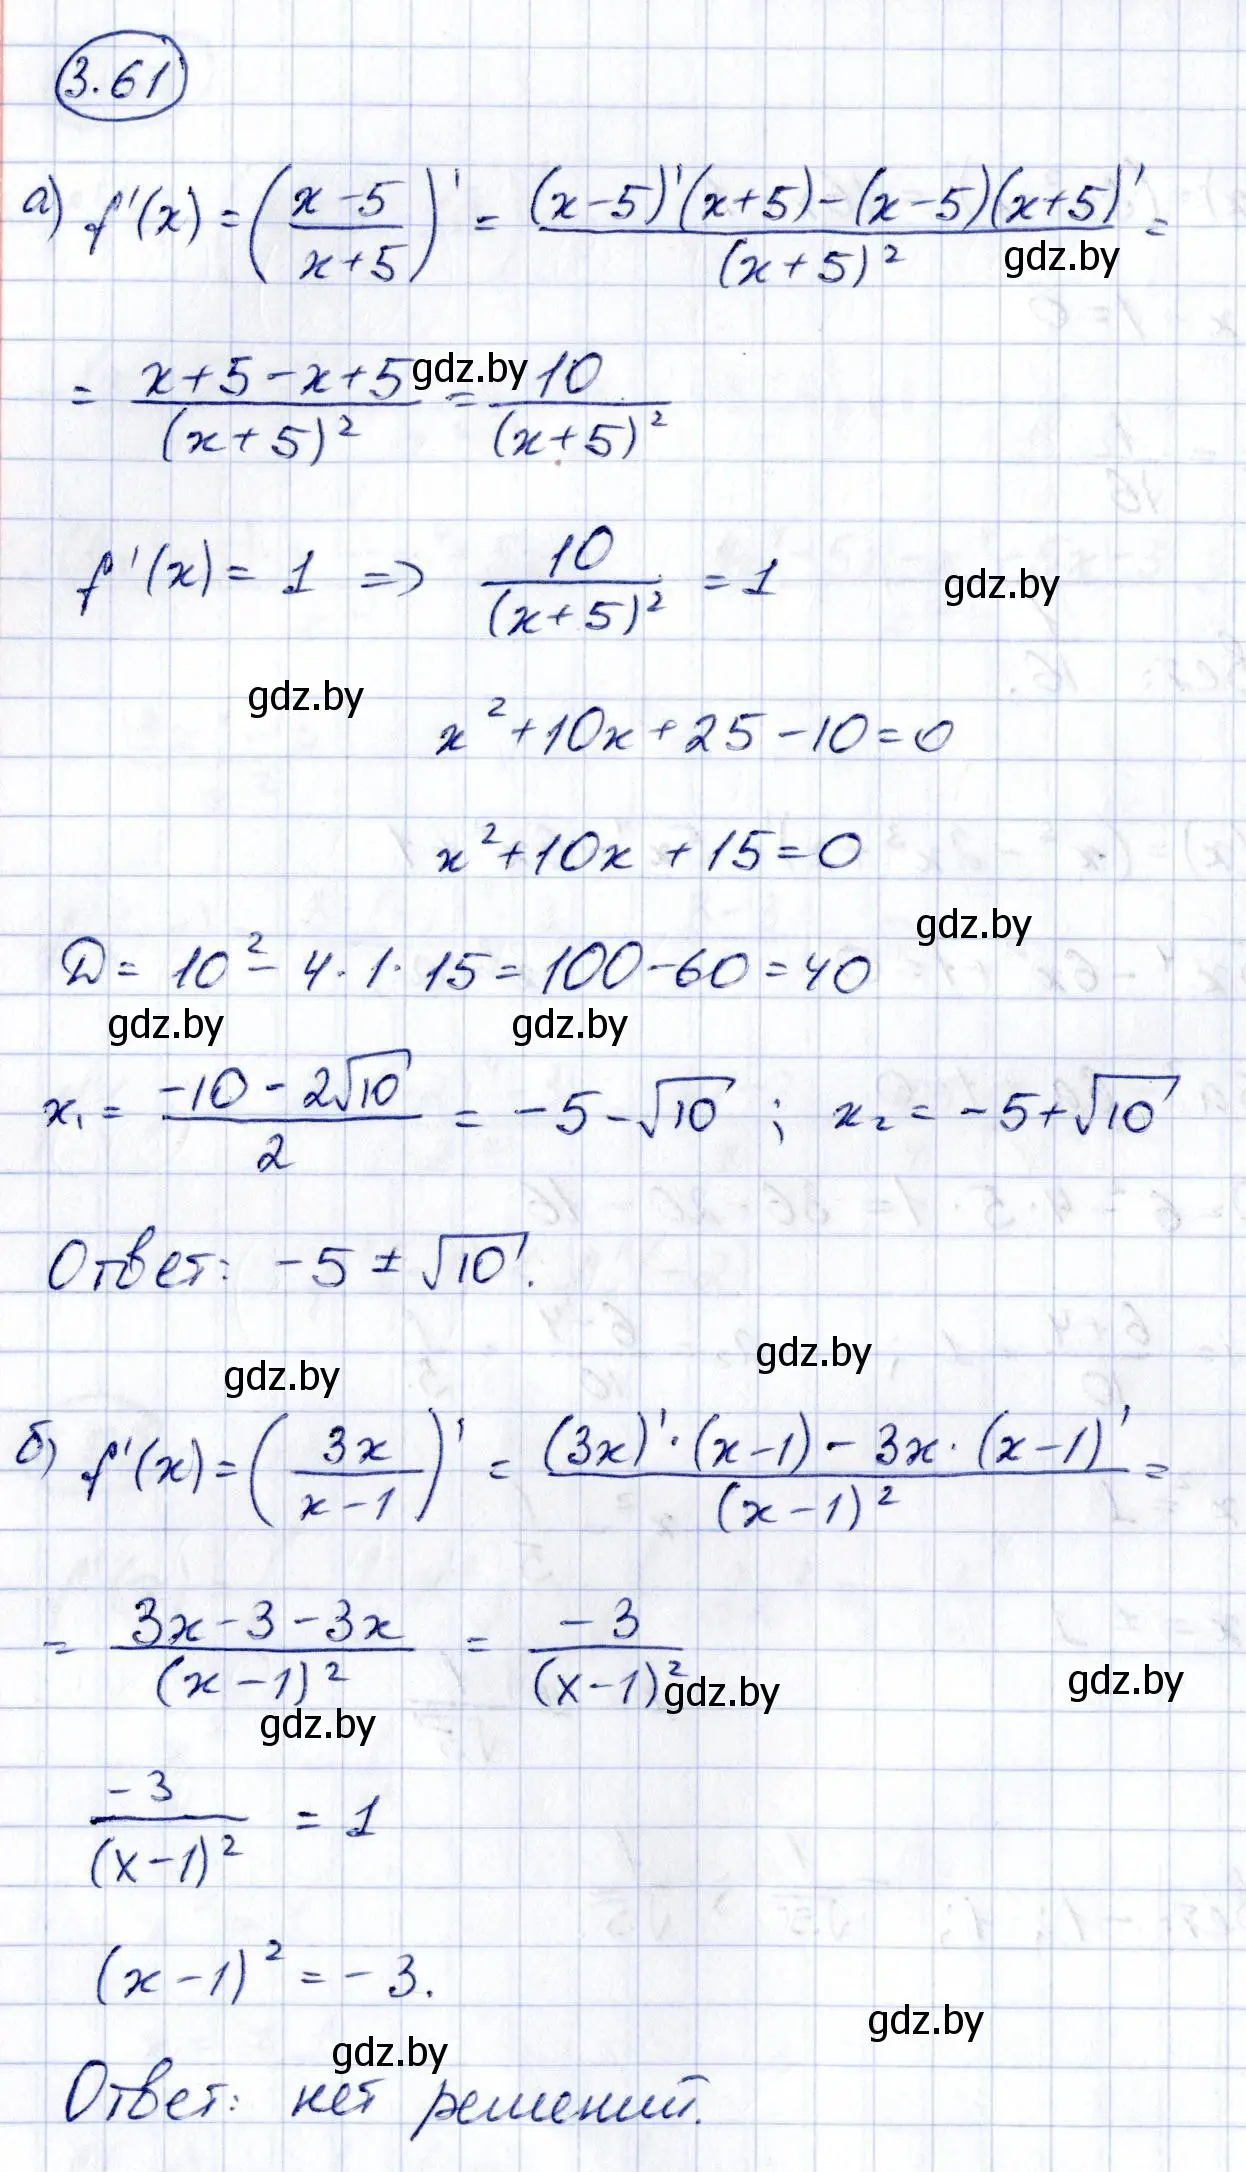 3.61
а) f'(x) = ((x-5)/(x+5))' = ((x-5)'(x+5) - (x-5)(x+5)')/(x+5)² =
gdz.by
= (x+5-x+5)/(x+5)² = 10/(x+5)²
gdz.by
f'(x) = 1 => 10/(x+5)² = 1
gdz.by
gdz.by
x² + 10x + 25 - 10 = 0
x² + 10x + 15 = 0
gdz.by
D = 10² - 4·1·15 = 100 - 60 = 40
gdz.by gdz.by
x₁ = (-10 - 2√10)/2 = -5 - √10 ; x₂ = -5 + √10
Ответ: -5 ± √10.
gdz.by
gdz.by
б) f'(x) = (3x/(x-1))' = ((3x)'·(x-1) - 3x·(x-1)')/(x-1)² =
= (3x - 3 - 3x)/(x-1)² = -3/(x-1)²
gdz.by gdz.by
gdz.by
-3/(x-1)² = 1
(x-1)² = -3.
gdz.by
gdz.by
Ответ: нет решений.